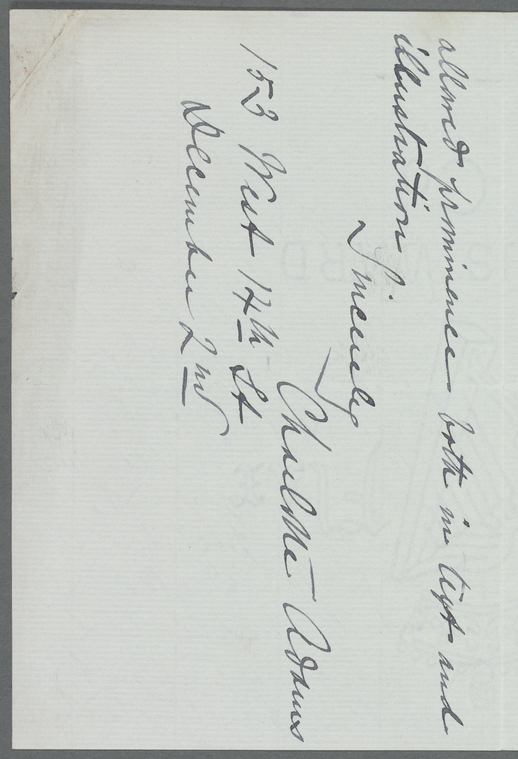 allowed prominence both in text and
illustration
Sincerely
Charlotte Adams
153 West 14th St
December 2nd